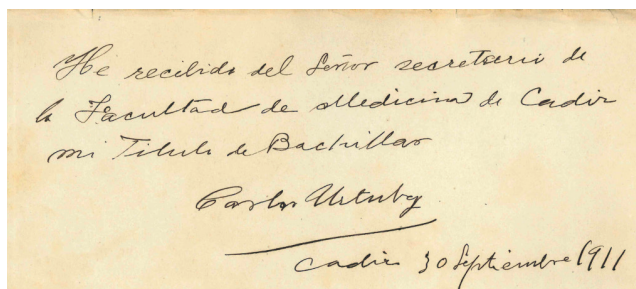 He recibido del Señor secretario de
la Facultad de Medicina de Cadiz
mi Titulo de Bachiller
Carlos
Cadiz 30 Septiembre 1911